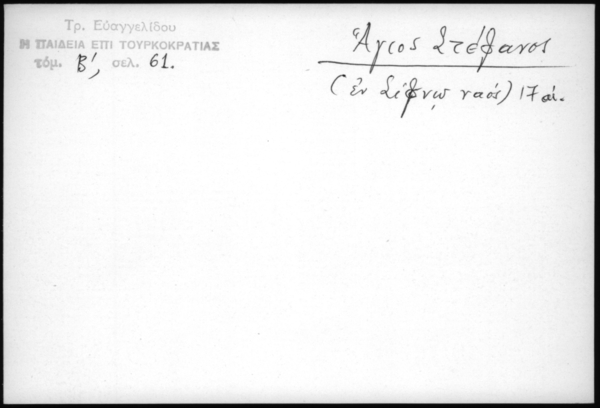 Τρ. Εὐαγγελίδου
Η ΠΑΙΔΕΙΑ ΕΠΙ ΤΟΥΡΚΟΚΡΑΤΙΑΣ
τόμ. Β', σελ. 61.
Ἅγιος Στέφανος
(ἐν Σίφνῳ ναός) 17 αἰ.